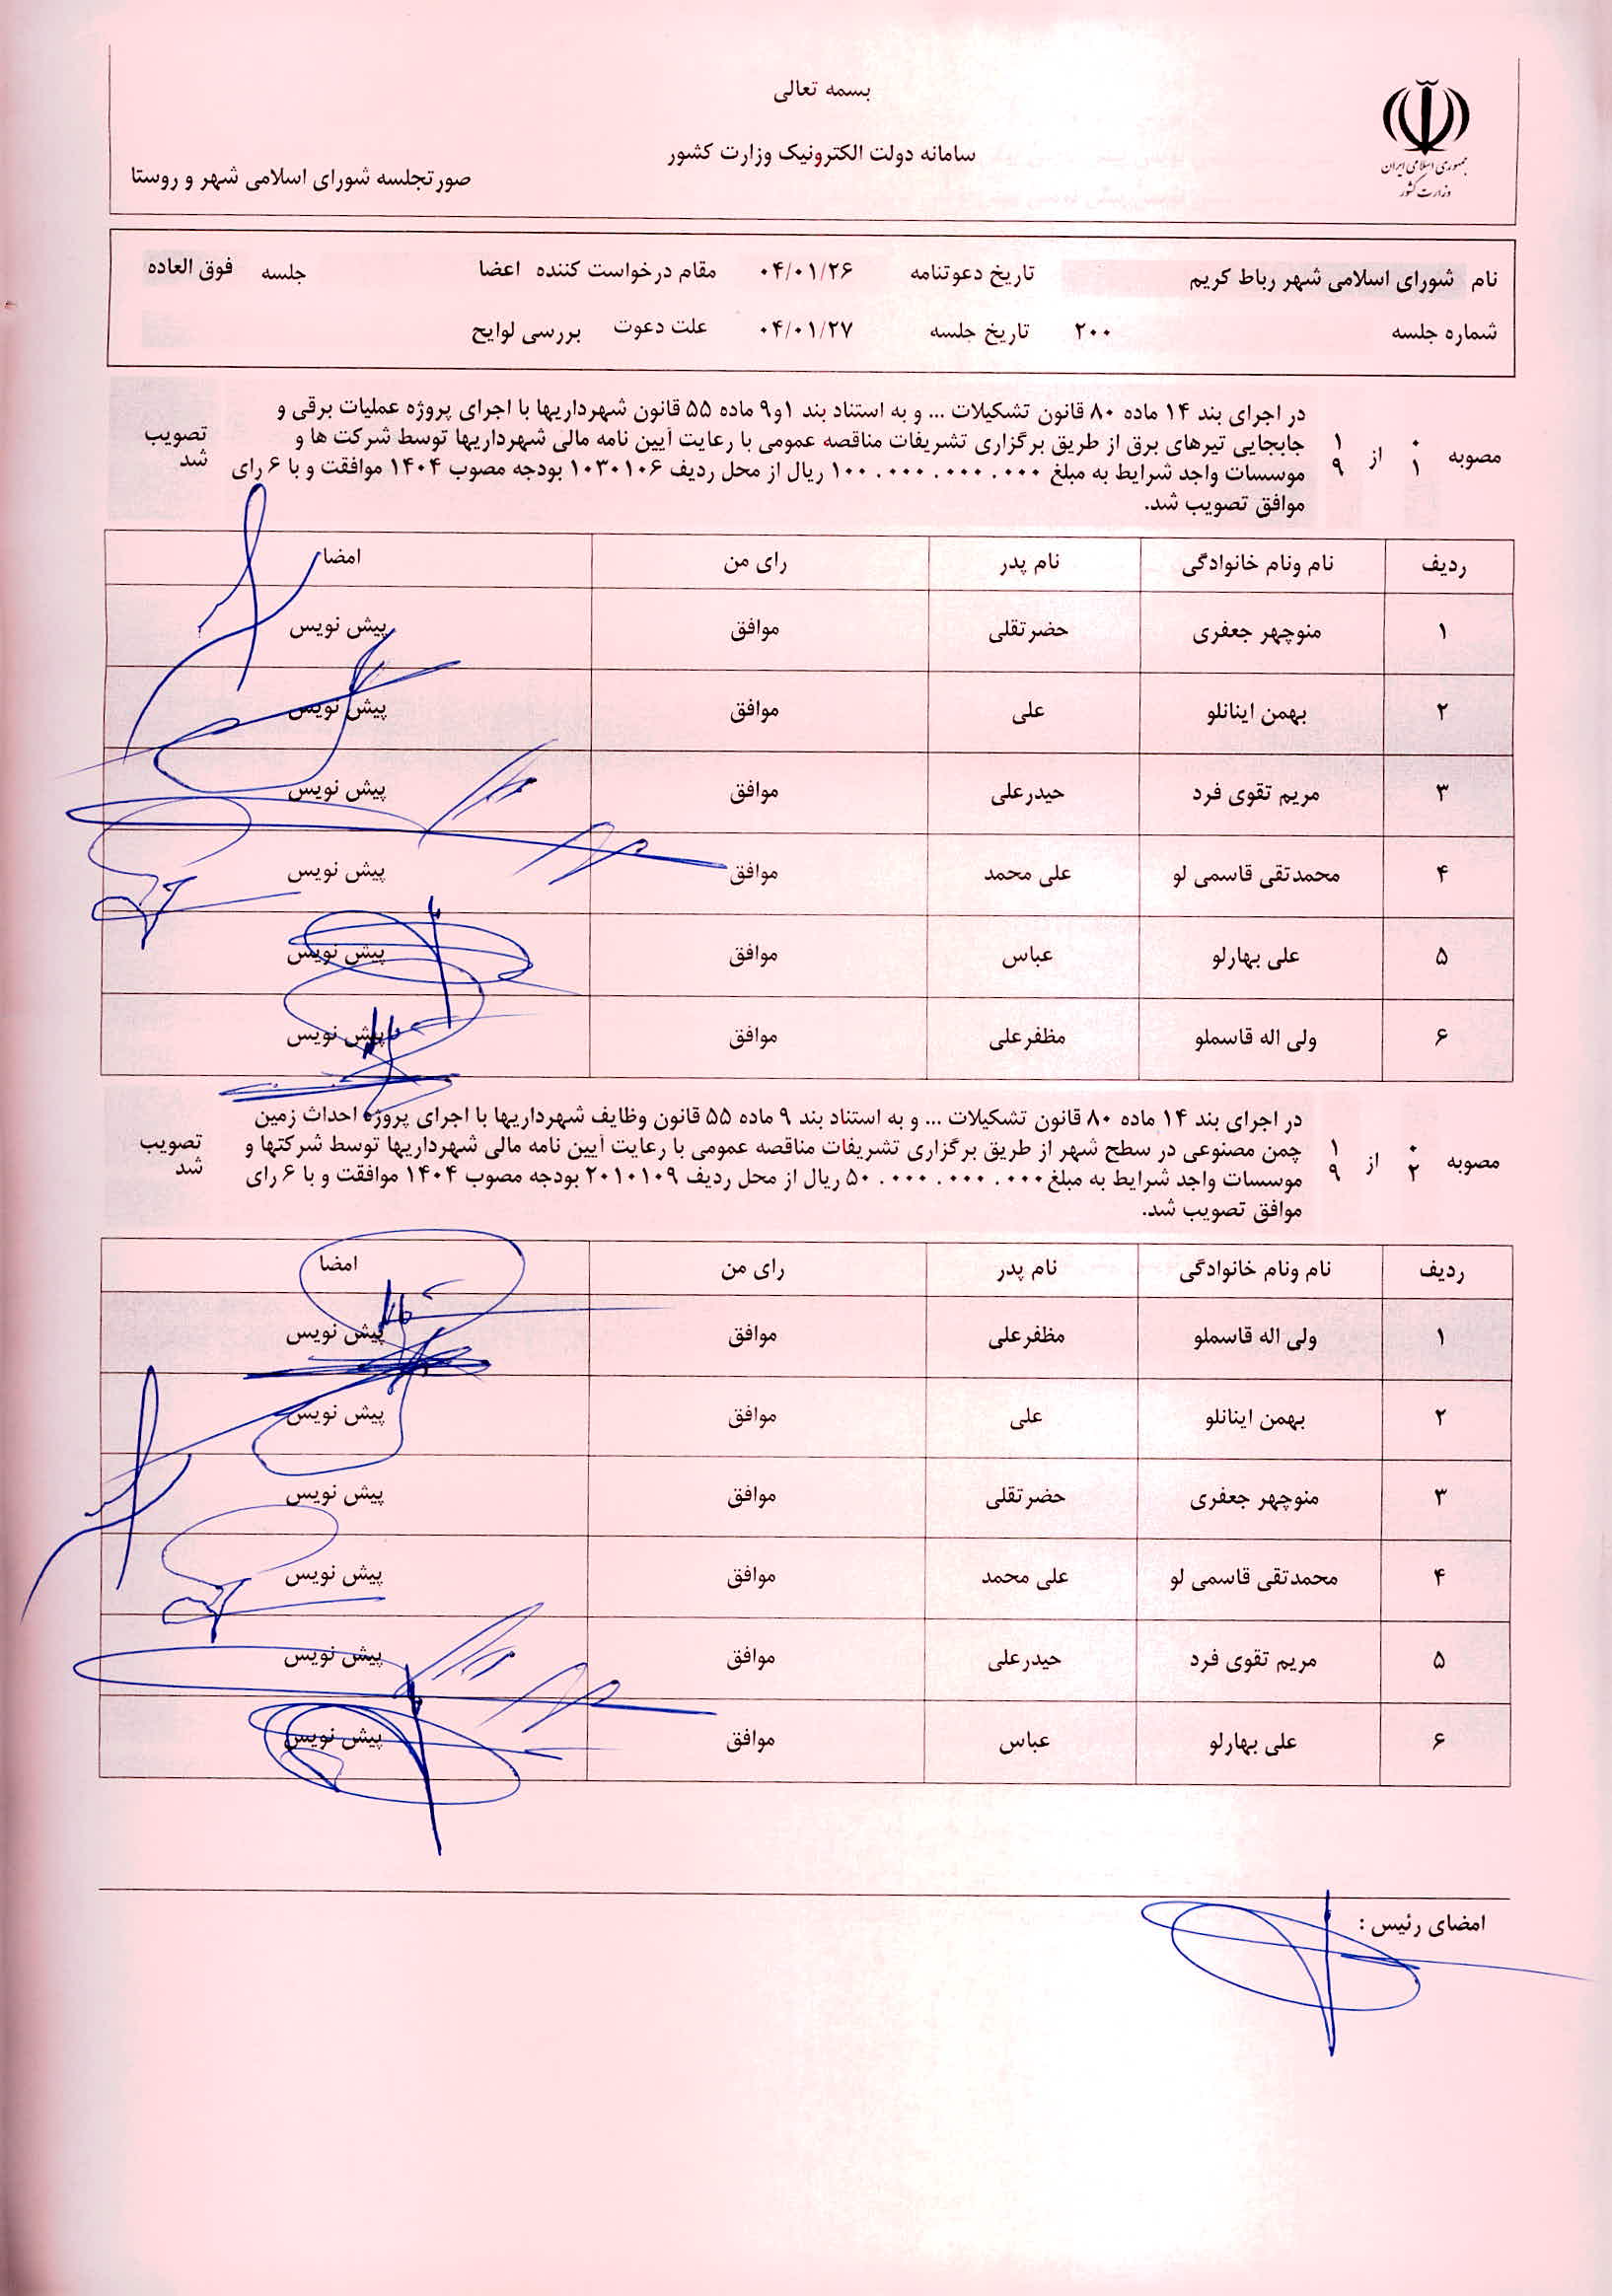 بسمه تعالی
سامانه دولت الکترونیک وزارت کشور
جمهوری اسلامی ایران
وزارت کشور
صورتجلسه شورای اسلامی شهر و روستا
نام شورای اسلامی شهر رباط کریم تاریخ دعوتنامه ۰۴/۰۱/۲۶ مقام درخواست کننده اعضا جلسه فوق العاده
شماره جلسه ۲۰۰ تاریخ جلسه ۰۴/۰۱/۲۷ علت دعوت بررسی لوایح
مصوبه ۰۱ از ۱۹
در اجرای بند ۱۴ ماده ۸۰ قانون تشکیلات ... و به استناد بند ۱و۹ ماده ۵۵ قانون شهرداریها با اجرای پروژه عملیات برقی و
جابجایی تیرهای برق از طریق برگزاری تشریفات مناقصه عمومی با رعایت آیین نامه مالی شهرداریها توسط شرکت ها و
موسسات واجد شرایط به مبلغ ۱۰۰.۰۰۰.۰۰۰.۰۰۰ ریال از محل ردیف ۱۰۳۰۱۰۶ بودجه مصوب ۱۴۰۴ موافقت و با ۶ رای
موافق تصویب شد.
تصویب
شد
ردیف نام ونام خانوادگی نام پدر رای من امضا
۱ منوچهر جعفری حضرتقلی موافق پیش نویس
۲ بهمن اینانلو علی موافق پیش نویس
۳ مریم تقوی فرد حیدرعلی موافق پیش نویس
۴ محمدتقی قاسمی لو علی محمد موافق پیش نویس
۵ علی بهارلو عباس موافق پیش نویس
۶ ولی اله قاسملو مظفرعلی موافق پیش نویس
مصوبه ۰۲ از ۱۹
در اجرای بند ۱۴ ماده ۸۰ قانون تشکیلات ... و به استناد بند ۹ ماده ۵۵ قانون وظایف شهرداریها با اجرای پروژه احداث زمین
چمن مصنوعی در سطح شهر از طریق برگزاری تشریفات مناقصه عمومی با رعایت آیین نامه مالی شهرداریها توسط شرکتها و
موسسات واجد شرایط به مبلغ ۵۰.۰۰۰.۰۰۰.۰۰۰ ریال از محل ردیف ۲۰۱۰۱۰۹ بودجه مصوب ۱۴۰۴ موافقت و با ۶ رای
موافق تصویب شد.
تصویب
شد
ردیف نام ونام خانوادگی نام پدر رای من امضا
۱ ولی اله قاسملو مظفرعلی موافق پیش نویس
۲ بهمن اینانلو علی موافق پیش نویس
۳ منوچهر جعفری حضرتقلی موافق پیش نویس
۴ محمدتقی قاسمی لو علی محمد موافق پیش نویس
۵ مریم تقوی فرد حیدرعلی موافق پیش نویس
۶ علی بهارلو عباس موافق پیش نویس
امضای رئیس :